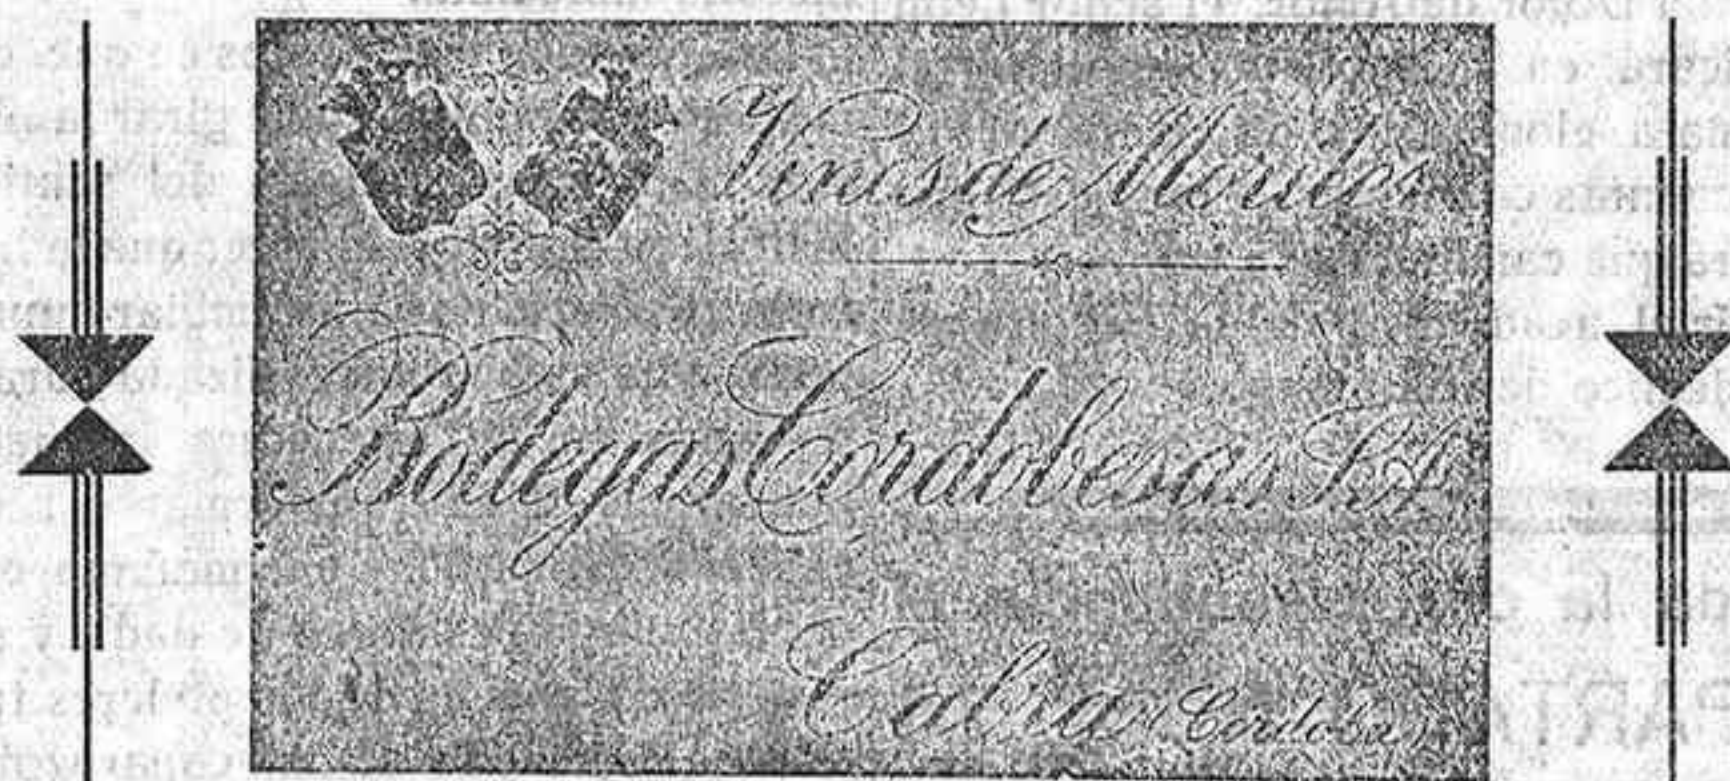 Vinos de Moriles
Bodegas Cordobesas S.A
Cabra Cordoba